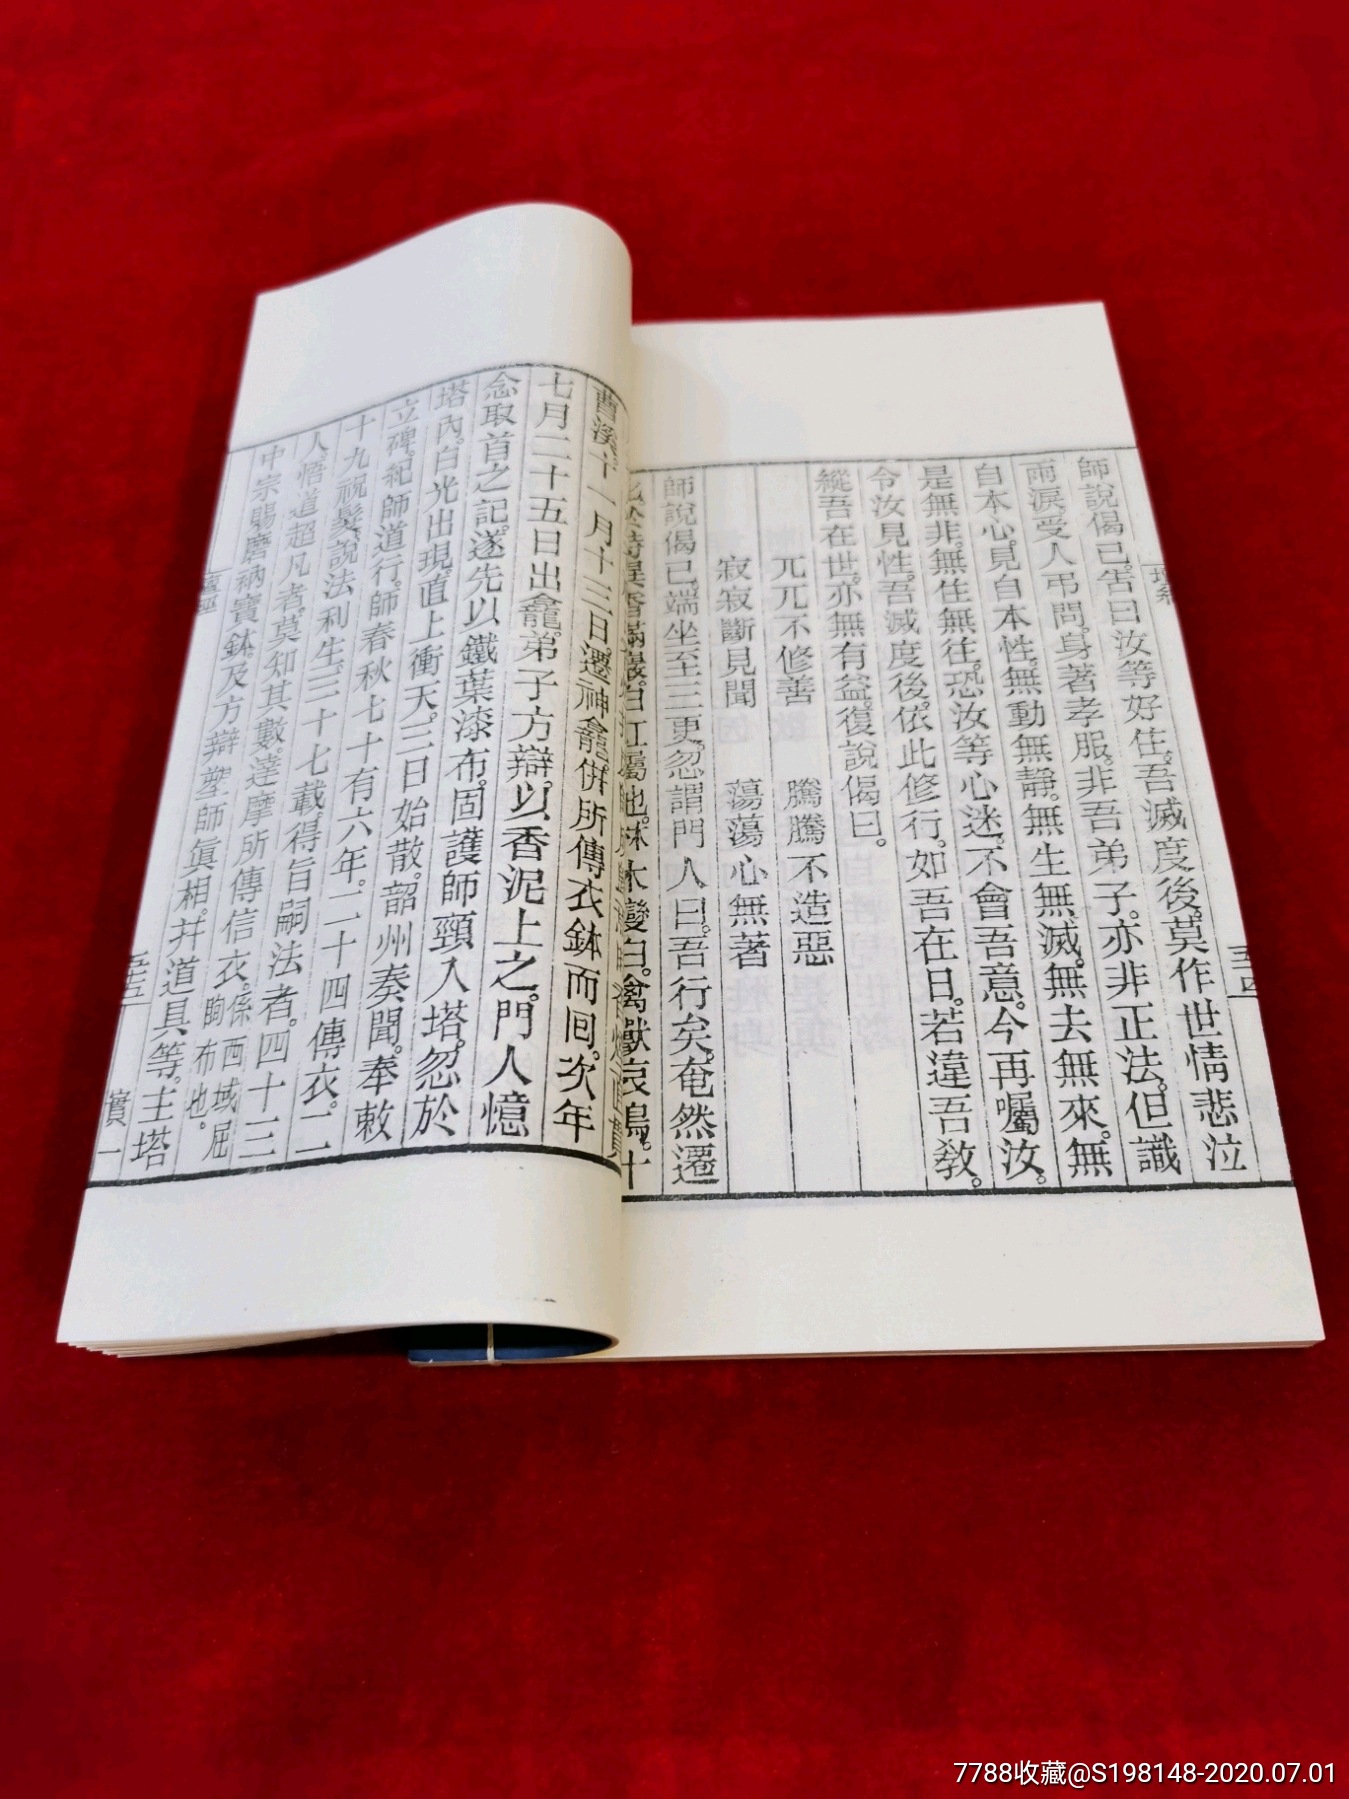 師說偈已。告曰汝等好住。吾滅度後。莫作世情悲泣
雨淚受人弔問。身著孝服。非吾弟子。亦非正法。但識
自本心。見自本性。無動無靜。無生無滅。無去無來。無
是無非。無住無往。恐汝等心迷。不會吾意。今再囑汝。
令汝見性。吾滅度後。依此修行。如吾在日。若違吾教。
縱吾在世。亦無有益。復說偈曰。
兀兀不修善 騰騰不造惡
寂寂斷見聞 蕩蕩心無著
師說偈已。端坐至三更。忽謂門人曰。吾行矣。奄然遷
屬地。林木變白。禽獸哀鳴。十
五十四
曹溪。十一月十三日。遷神龕。併所傳衣鉢而回。次年
七月二十五日出龕。弟子方辯。以香泥上之。門人憶
念取首之記。遂先以鐵葉漆布。固護師頸入塔。忽於
塔內。白光出現。直上衝天。三日始散。韶州奏聞。奉敕
立碑。紀師道行。師春秋七十有六年。二十四傳衣。二
十九祝髮。說法利生。三十七載。得旨嗣法者。四十三
人。悟道超凡者。莫知其數。達摩所傳信衣。係西域屈眴布也。
中宗賜磨衲寶鉢。及方辯塑師眞相。幷道具等。主塔
五十五
實一
7788收藏@S198148-2020.07.01